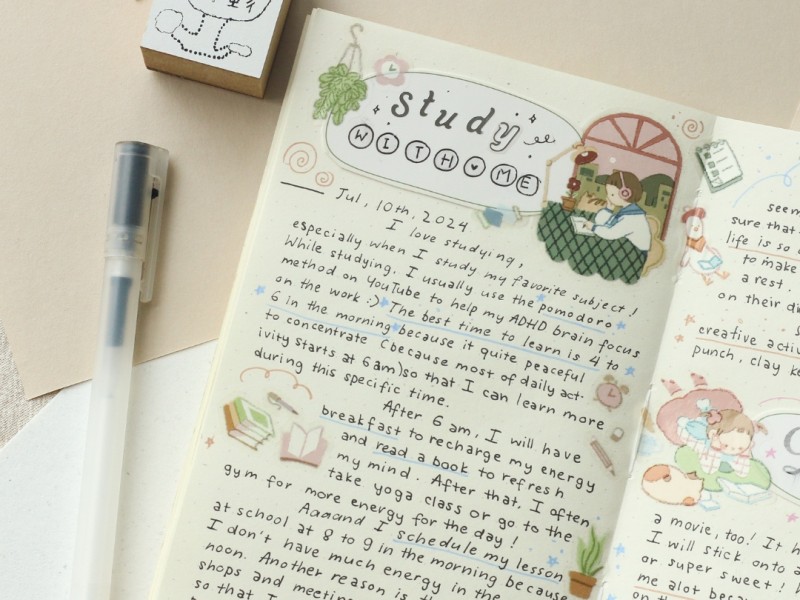 study
WITH ME
Jul, 10th, 2024
I love studying,
especially when I study my favorite subject!
While studying. I usually use the pomodoro
method on YouTube to help my ADHD brain focus
on the work :) The best time to learn is 4 to
6 in the morning because it quite peaceful
to concentrate (because most of daily act-
ivity starts at 6am) so that I can learn more
during this specific time.
After 6 am, I will have
breakfast to recharge my energy
and read a book to refresh
my mind. After that, I often
take yoga class or go to the
gym for more energy for the day!
Aaaand I schedule my lesson
at school at 8 to 9 in the morning because
I don't have much energy in the
noon. Another reason is th
shops and meetin
so that I
seem
sure that
life is so
to make
a rest.
on their di
creative activ
punch, clay ke
a movie, too! It h
I will stick onto a
or super sweet!
me alot beca
on th